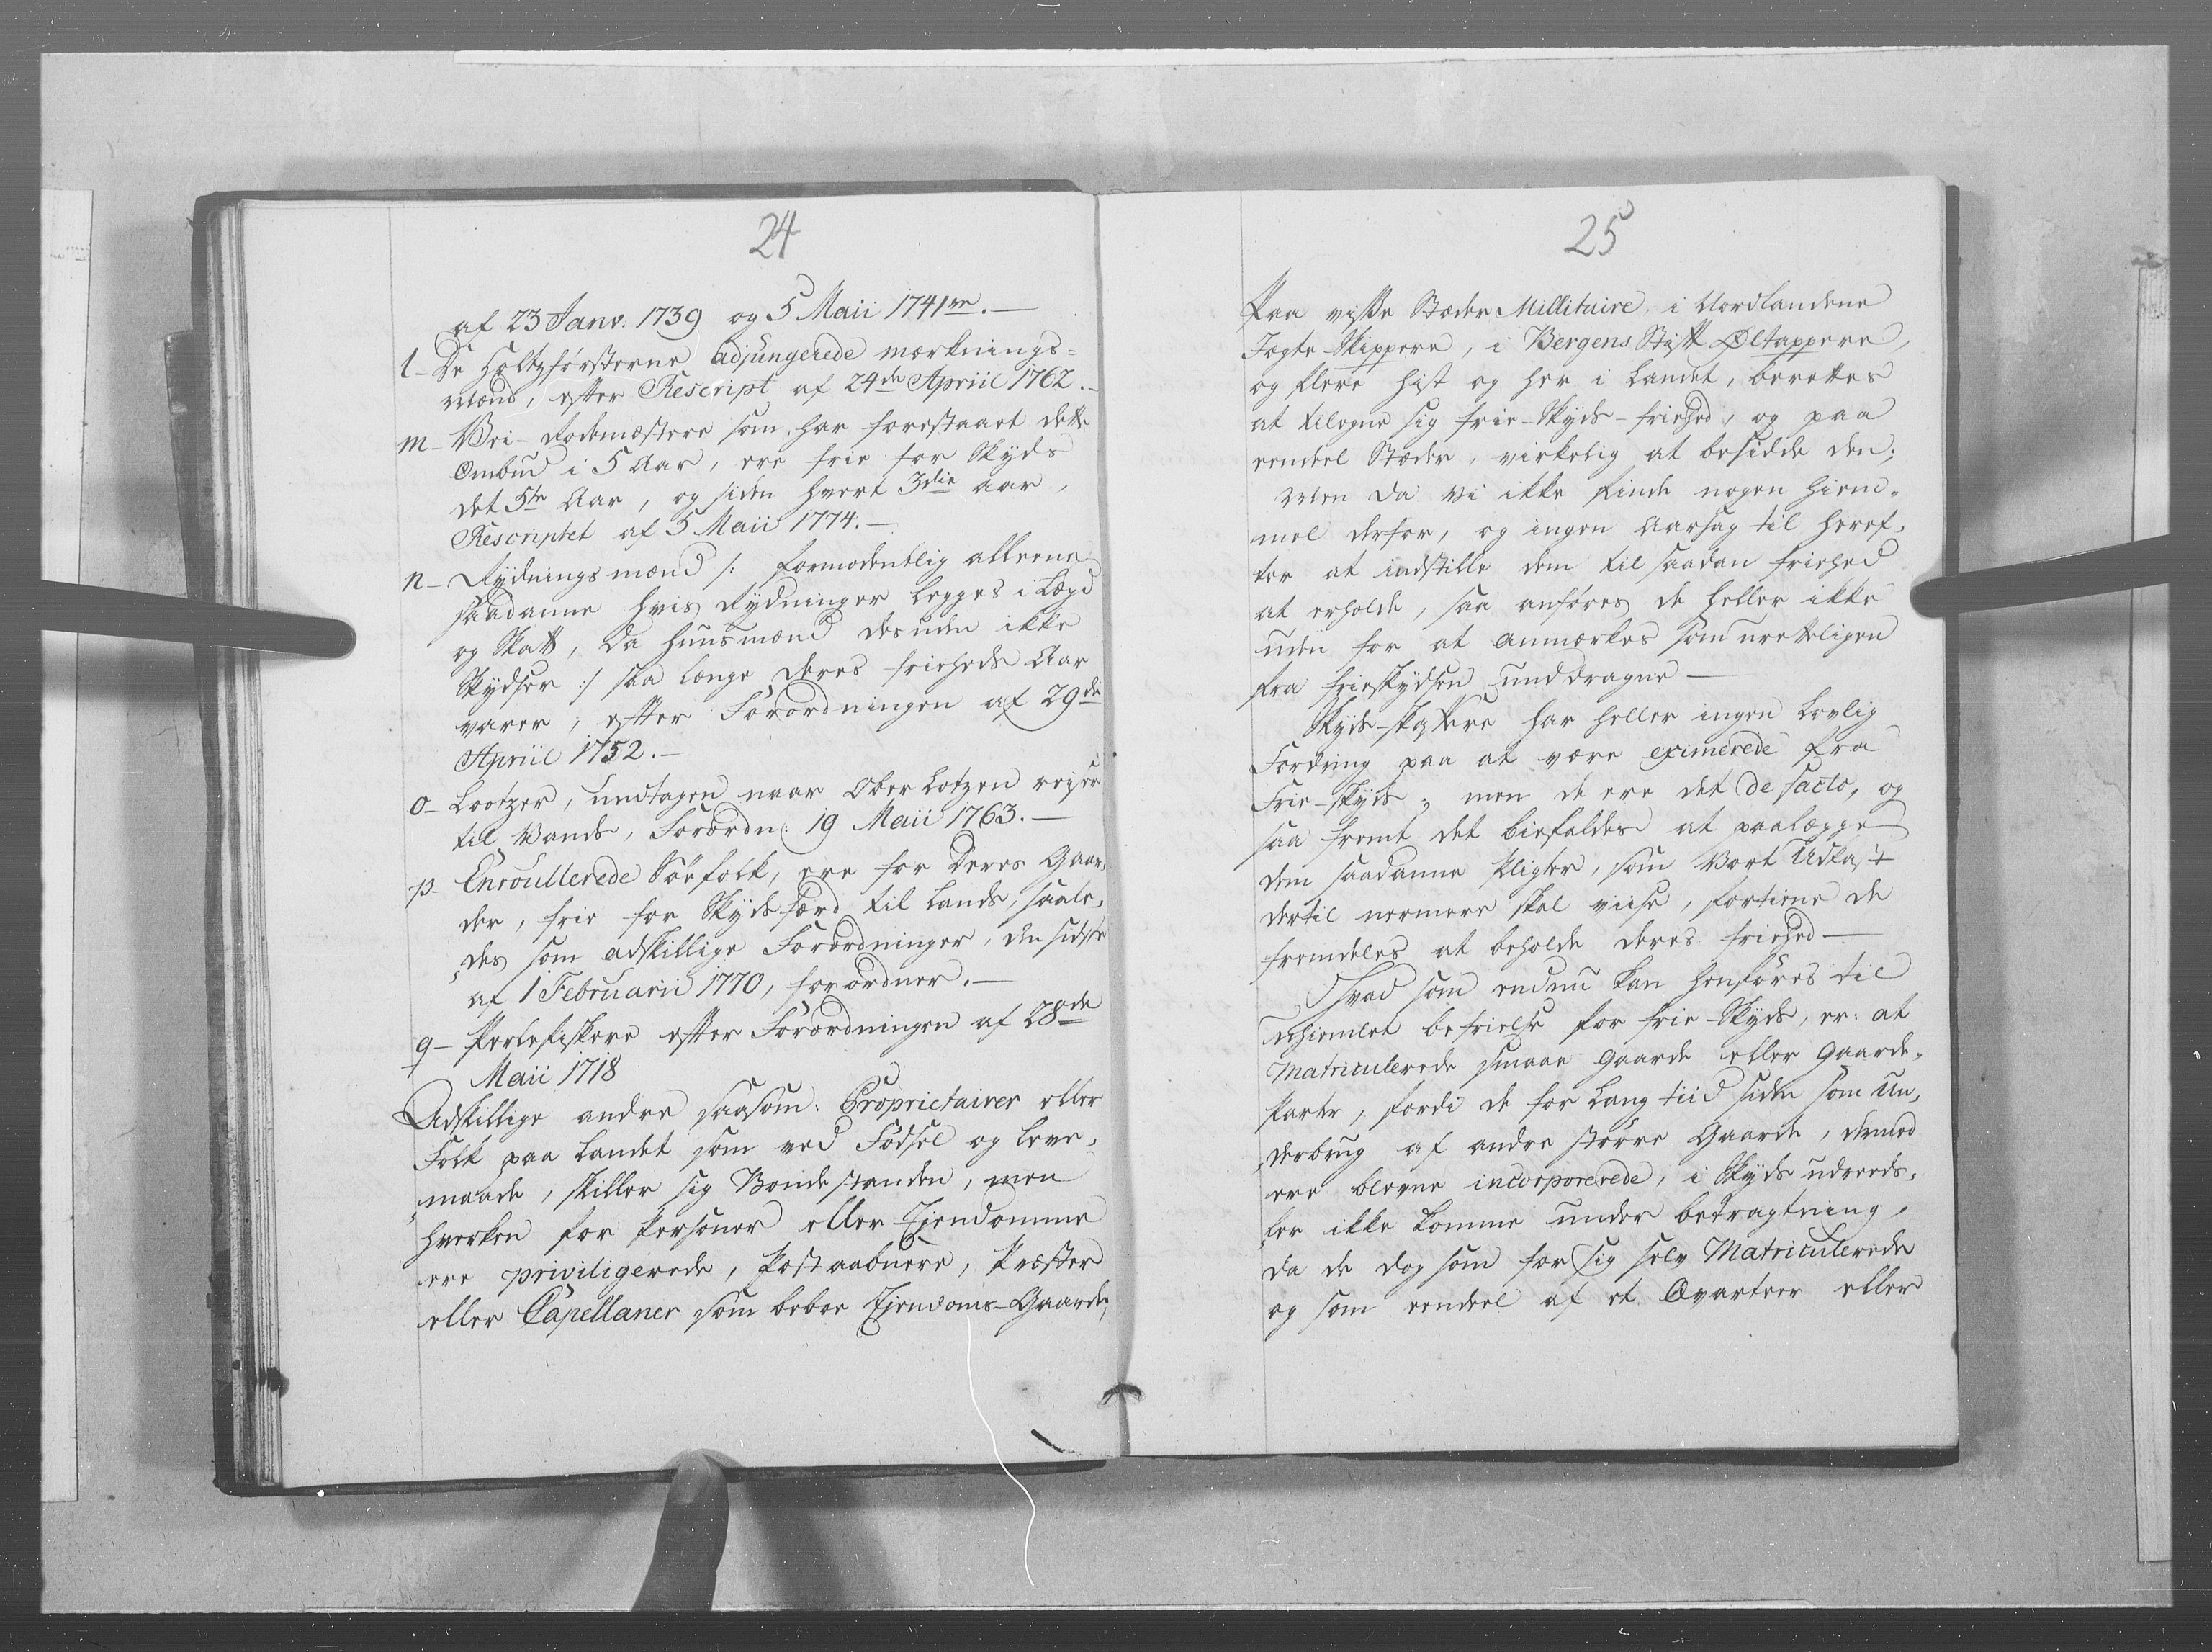 24
af 23 Janv: 1739 og 5 Maii 1741ve.—
l- De Holtzførsterne adjungerede mærknings-
mænd, efter Rescript af 24de Apriil 1762.-
m- Vei-Rodemæstere som har forestaaet dette
Ombud i 5 Aar, ere frie for Skyds
det 5te Aar, og siden hvert 3die aar,
Rescriptet af 5 Maii 1774.—
n- Rydningsmænd /: formodentlig alleene
saadanne hvis Rydninger legges i Lægd
og Skatt, da huusmænd desuden ikke
Skydser :/ saa længe deres friheds Aar
varer, efter Forordningen af 29de
Apriil 1752.—
o- Lootzer, undtagen naar Ober Lotzen reiser
til Vands, Forordn: 19 Maii 1763.—
p- Enroullerede Söefolk, ere for deres Gaar-
der, frie for Skydsfærd til Lands, saale-
des som adskillige Forordninger, den sidste
af 1 Februarii 1770, forordner.—
q- Perlefiskere efter Forordningen af 28de
Maii 1718
Adskillige andre saasom: Proprietairer eller
Folk paa Landet som ved Födsel og leve-
maade, skiller sig Bondestanden, men
hverken for Personer eller Ejendomme
ere priviligerede, Postaabnere, Præster
eller Capellaner som beboe Ejendoms-Gaarde,
25
Paa visse Stæder Millitaire i Nordlandene
Jægte-Skippere, i Bergens Stift Øltappere,
og flere hist og her i Landet, berettes
at tilegne sig frie-Skyds-friehed, og paa
eendeel Stæder, virkelig at besidde den;
Men da vi ikke finde nogen hiem-
mel derfor, og ingen Aarsag til heref-
ter at indstille dem til saadan friehed
at erholde, saa anføres de heller ikke
uden for at anmærkes som uretteligen
fra frieskydsen unddragne—
Skyds-skaffere har heller ingen lovlig
Fordring paa at være eximerede fra
Frie-skyds; men de ere det de facto, og
saa fremt det biefaldes at paalægge
dem saadanne Pligter, som Vort Udkast
dertil nermere skal viise, fortiene de
fremdeles at beholde deres friehed—
Hvad som endnu kan henføres til
uhiemlet befrielse for frie-Skyds, er: at
Matriculerede smaae gaarde eller Gaarde-
parter, fordi de for lang tiid siden som Un-
derbrug af andre större Gaarde, dermed
ere blevne incorporerede, i Skyds udreeds-
ler ikke komme under betragtning,
da de dog som for sig selv Matriculerede
og som eendeel af et Qvarteer eller